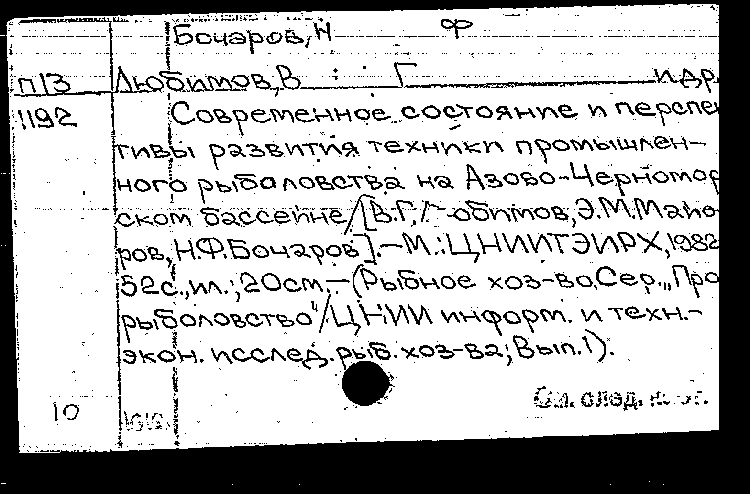 Бочаров, Н Ф
П13 Любимов, В Г и др.
1192 Современное состояние и перспек
тивы развития техники промышлен-
ного рыболовства на Азово-Черномор
ском бассейне/[В.Г. Любимов, Э.М. Мано
ров, Н.Ф. Бочаров].-М.: ЦНИИТЭИРХ, 1982
52с., ил.; 20см.-(Рыбное хоз-во. Сер. „Про
рыболовство"/ЦНИИ информ. и техн.-
экон. исслед. рыб. хоз-ва; Вып. 1).
См. след. к
10